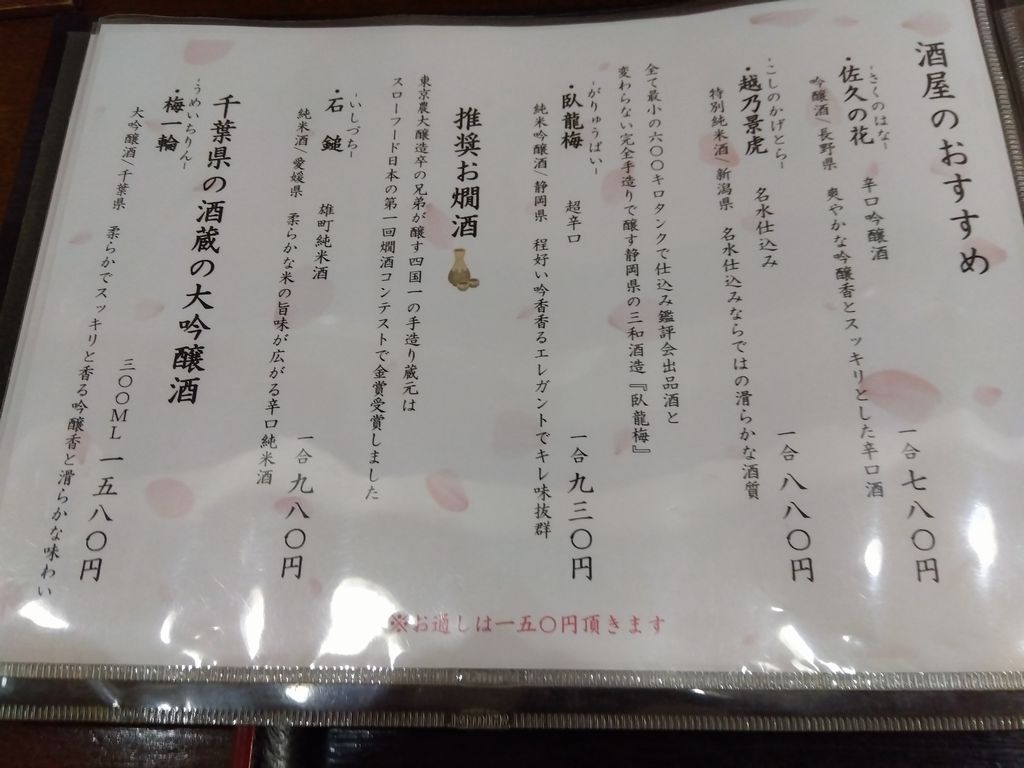 酒屋のおすすめ
-さくのはな-
・佐久の花 辛口吟醸酒 一合 七八〇円
吟醸酒/長野県 爽やかな吟醸香とスッキリとした辛口酒
-こしのかげとら-
・越乃景虎 名水仕込み 一合 八八〇円
特別純米酒/新潟県 名水仕込みならではの滑らかな酒質
全て最小の六〇〇キロタンクで仕込み鑑評会出品酒と
変わらない完全手造りで醸す静岡県の三和酒造『臥龍梅』
-がりゅうばい-
・臥龍梅 超辛口 一合 九三〇円
純米吟醸酒/静岡県 程好い吟香香るエレガントでキレ味抜群
推奨お燗酒
東京農大醸造卒の兄弟が醸す四国一の手造り蔵元は
スローフード日本の第一回燗酒コンテストで金賞受賞しました
-いしづち-
・石鎚 雄町純米酒 一合 九八〇円
純米酒/愛媛県 柔らかな米の旨味が広がる辛口純米酒
千葉県の酒蔵の大吟醸酒
-うめいちりん-
・梅一輪 三〇〇ML 一五八〇円
大吟醸酒/千葉県 柔らかでスッキリと香る吟醸香と滑らかな味わい
※お通しは一五〇円頂きます